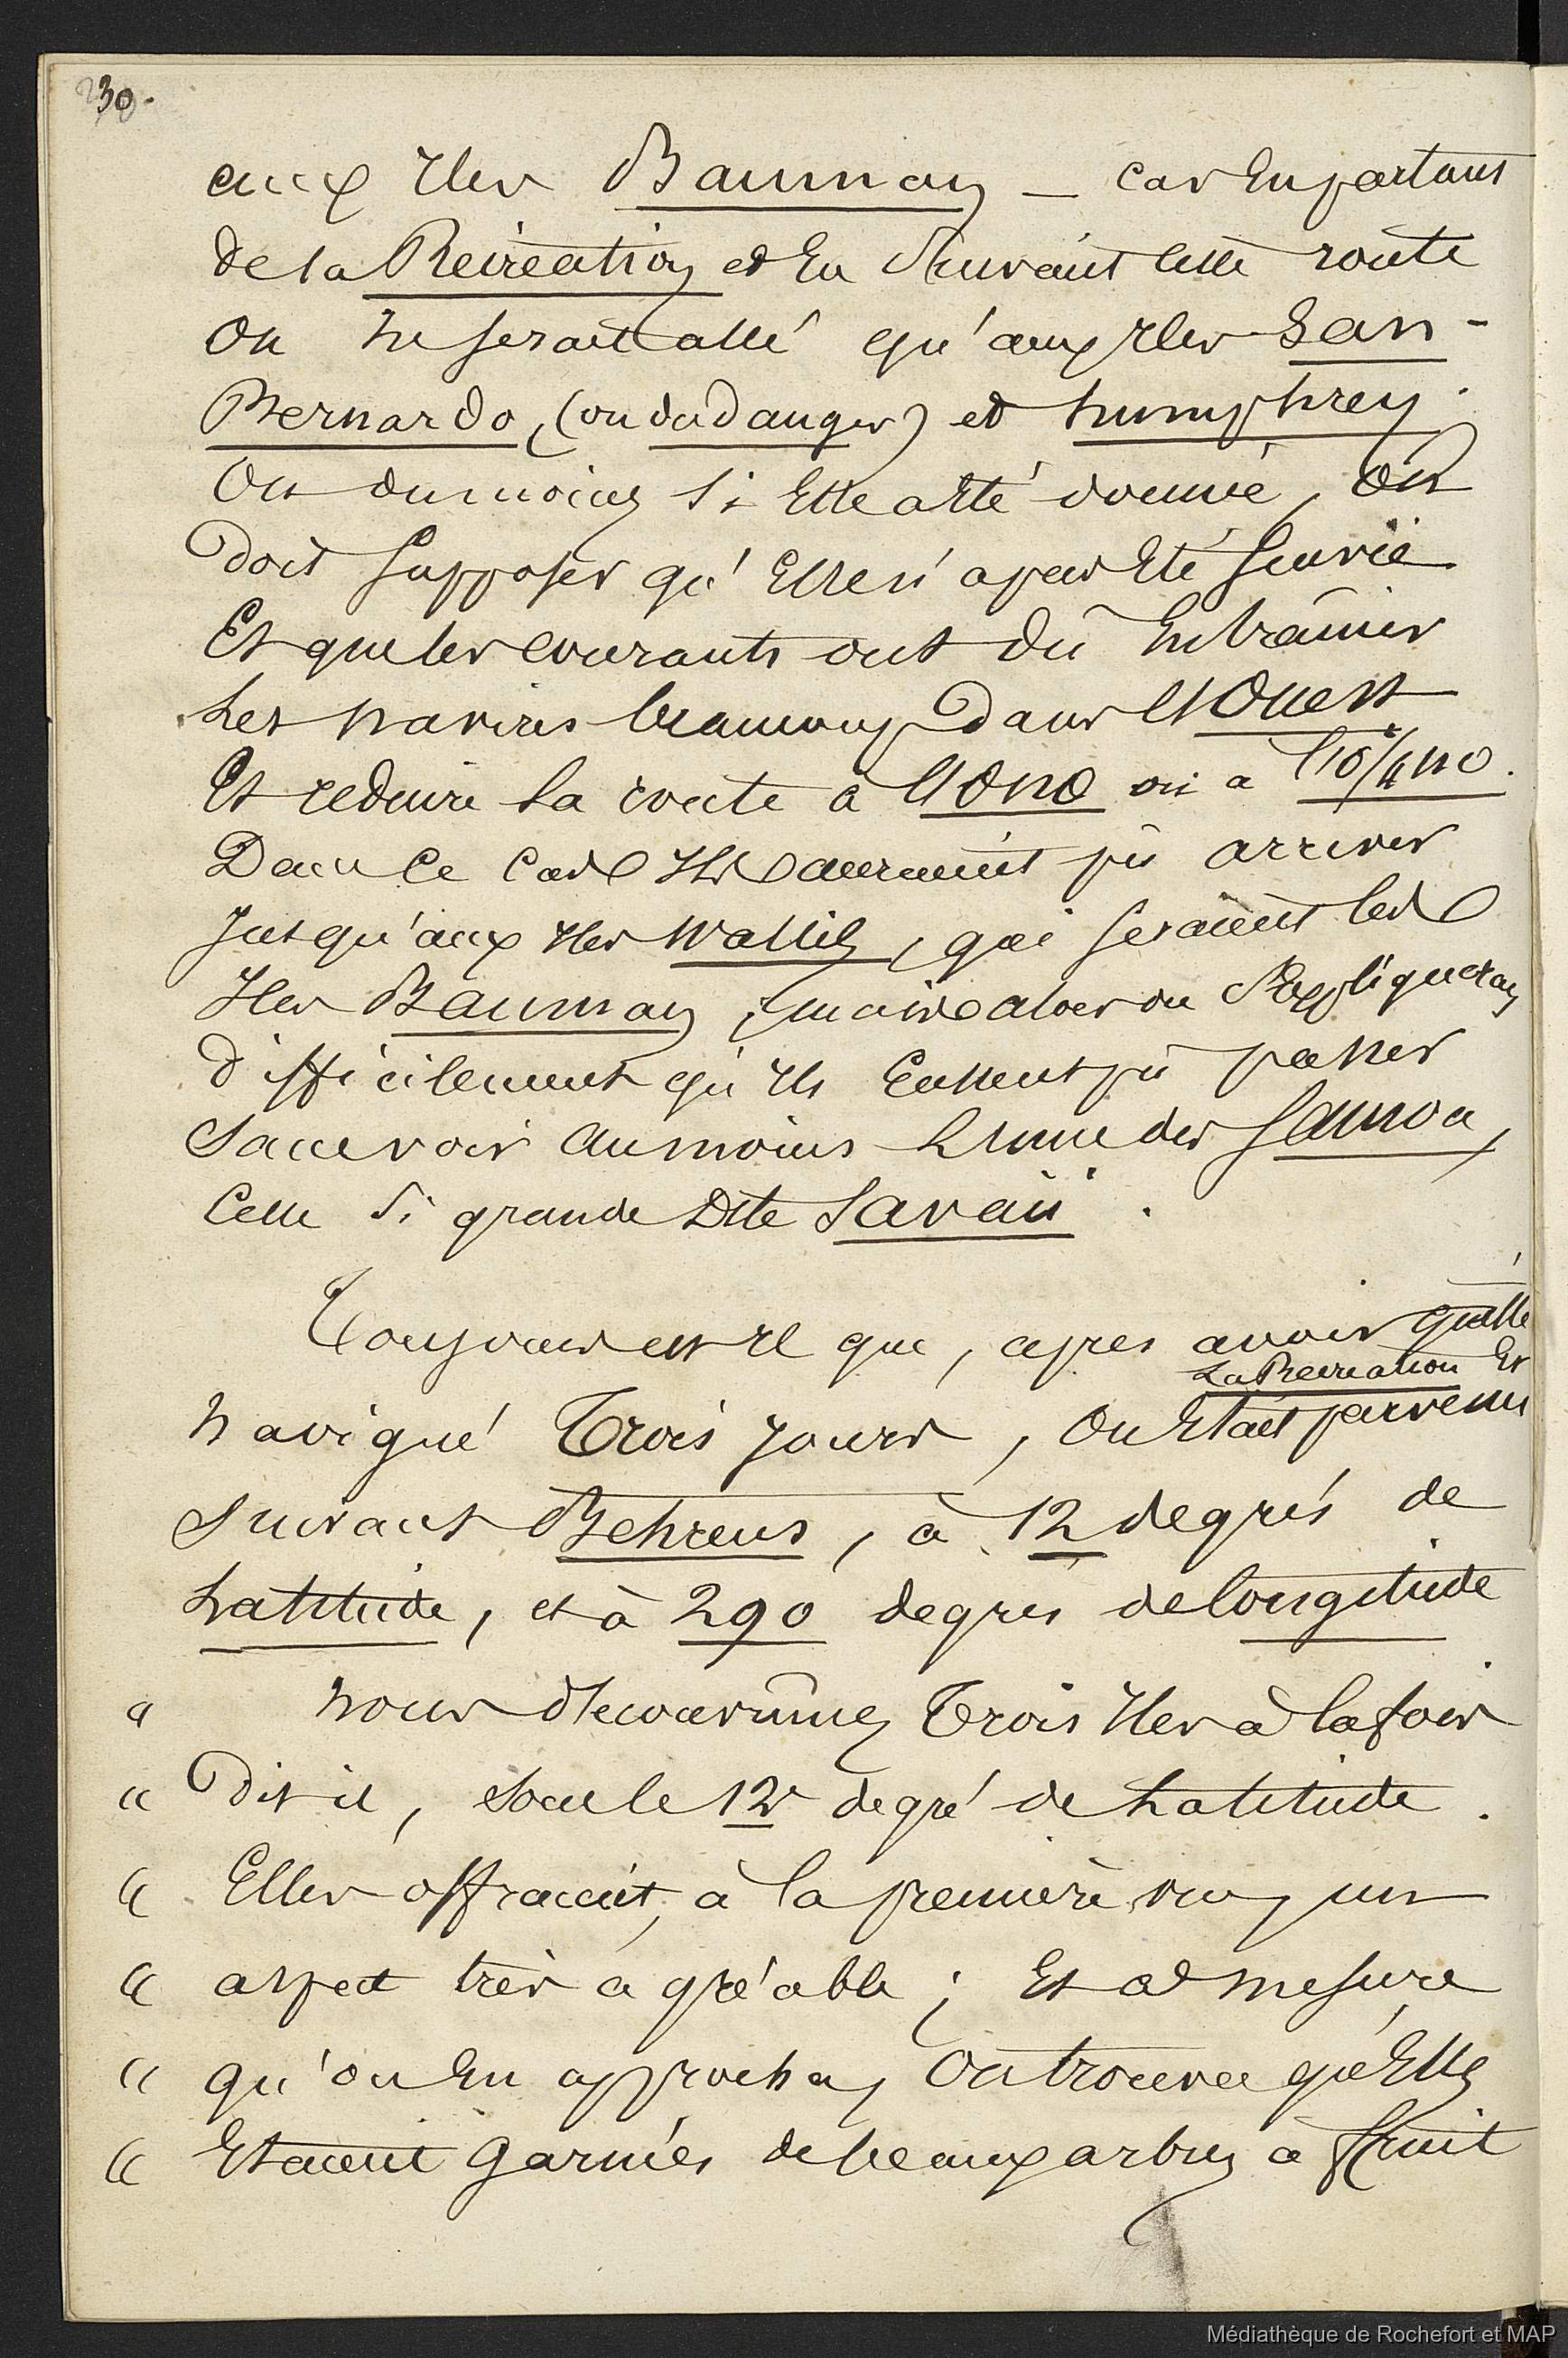 230.
aux Iles Bauman — Car En partant
de la Récréation et En Suivant cette route
on ne serait allé qu'aux Iles San-
Bernardo, (ou du danger) et humphrey.
Ou du moins si Elle a été donnée, on
doit supposer qu'Elle n'a pas Eté Suivie
Et que les courants ont dû Entrainer
Les navires beaucoup dans l'Ouest
Et reduire la route à l'ONO ou à l'O¼NO.
Dans ce Cas Ils auraient pû arriver
Jusqu'aux Iles Wallis, qui seraient les
Iles Bauman, mais alors on S'expliquera
difficilement qu'Ils Eussent pû passer
Sans voir au moins L'une des Samoa,
Celle si grande Dite Savaii.
Toujours est Il que, après avoir quitté
La Récréation Et
navigué Trois Jours, on Etait parvenu
suivant Behrens, à 12 degrés de
Latitude, et à 290 degrés de longitude
" nous découvrîmes Trois Iles à la fois
" dit il, sous le 12e degré de Latitude.
" Elles offraient, à la première vue, un
" aspect très agréable; Et à mesure
" qu'on En approcha, On trouva qu'Elles
" Etaient Garnies de beaux arbres à fruit
Médiathèque de Rochefort et MAP